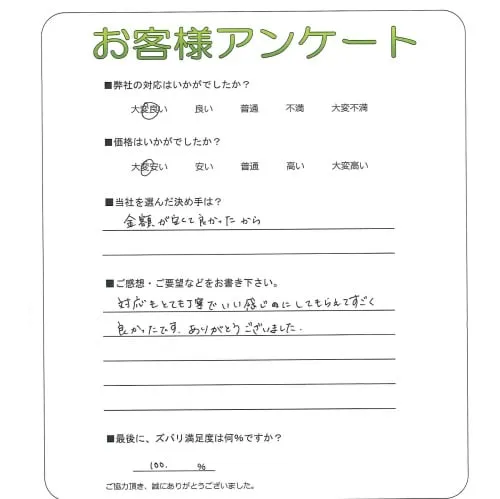 お客様アンケート
■弊社の対応はいかがでしたか？
大変良い 良い 普通 不満 大変不満
■価格はいかがでしたか？
大変安い 安い 普通 高い 大変高い
■当社を選んだ決め手は？
金額が安くて良かったから
■ご感想・ご要望などをお書き下さい。
対応もとても丁寧でいい感じのにしてもらえてすごく
良かったです。ありがとうございました。
■最後に、ズバリ満足度は何％ですか？
100. ％
ご協力頂き、誠にありがとうございました。